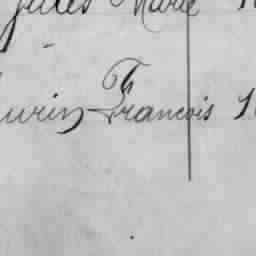 Jules Marie
urin François 1